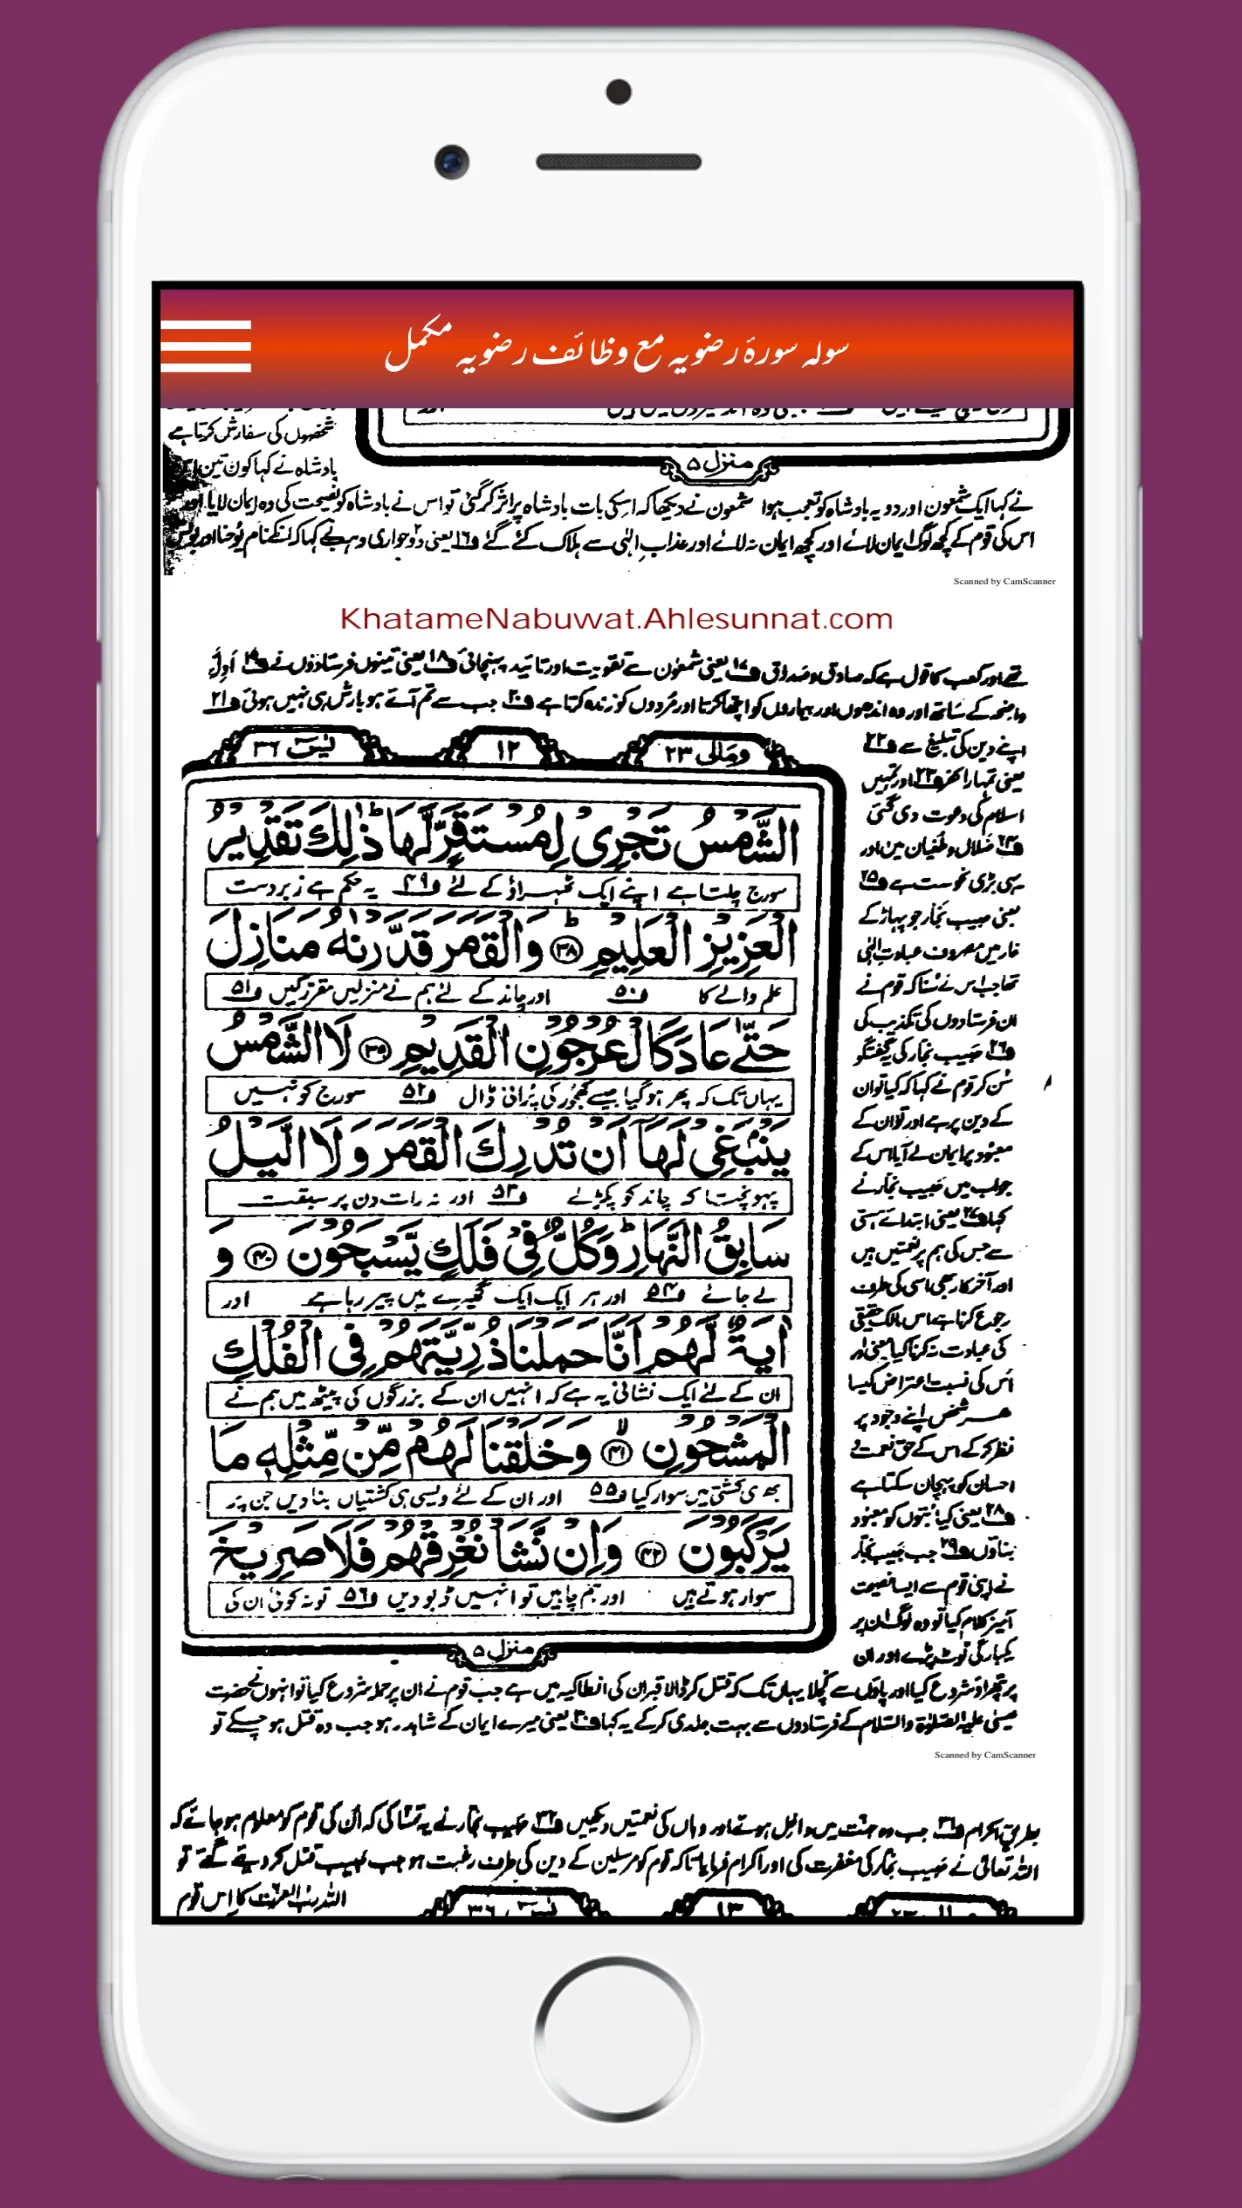 سولہ سورۂ رضویہ مع وظائف رضویہ مکمل
شخصوں کی سفارش کرتا ہے
منزل ۵
بادشاہ نے کہا کون تین
نے کہا ایک شمعون اور دو یہ بادشاہ کو تعجب ہوا شمعون نے دیکھا کہ اسکی بات بادشاہ پر اثر کر گئی تو اس نے بادشاہ کو نصیحت کی وہ ایمان لایا اور
اس کی قوم کے کچھ لوگ ایمان لائے اور کچھ ایمان نہ لائے اور عذاب الٰہی سے ہلاک کئے گئے ف۱۶ یعنی دو حواری وہب نے کہا کہ انکے نام یوحنا اور بولس
Scanned by CamScanner
KhatameNabuwat.Ahlesunnat.com
تھے اور کعب کا قول ہے کہ صادق و صدوق ف۱۷ یعنی شمعون سے تقویت اور تائید پہنچائی ف۱۸ یعنی تینوں فرستادوں نے ف۱۹ ادلۂ
واضحہ کے ساتھ اور وہ اندھوں اور بیماروں کو اچھا کرتا اور مردوں کو زندہ کرتا ہے ف۲۰ جب سے تم آئے ہو بارش ہی نہیں ہوئی ف۲۱
ومالی ۲۳
۱۲
یٰس ۳۶
الشَّمْسُ تَجْرِیْ لِمُسْتَقَرٍّ لَّهَا ؕ ذٰلِكَ تَقْدِیْرُ
سورج چلتا ہے اپنے ایک ٹھہراؤ کے لئے ف۴۹ یہ حکم ہے زبردست
الْعَزِیْزِ الْعَلِیْمِ ؕ ۳۸ وَالْقَمَرَ قَدَّرْنٰهُ مَنَازِلَ
علم والے کا ف۵۰ اور چاند کے لئے ہم نے منزلیں مقرر کیں ف۵۱
حَتّٰى عَادَ كَالْعُرْجُوْنِ الْقَدِیْمِ ۳۹ لَا الشَّمْسُ
یہاں تک کہ پھر ہوگیا جیسے کھجور کی پرانی ڈال ف۵۲ سورج کو نہیں
یَنْۢبَغِیْ لَهَاۤ اَنْ تُدْرِكَ الْقَمَرَ وَلَا الَّیْلُ
پہونچتا کہ چاند کو پکڑلے ف۵۳ اور نہ رات دن پر سبقت
سَابِقُ النَّهَارِ ؕ وَكُلٌّ فِیْ فَلَكٍ یَّسْبَحُوْنَ ۴۰ وَ
لے جائے ف۵۴ اور ہر ایک ایک گھیرے میں پیر رہا ہے اور
اٰیَةٌ لَّهُمْ اَنَّا حَمَلْنَا ذُرِّیَّتَهُمْ فِی الْفُلْكِ
ان کے لئے ایک نشانی یہ ہے کہ انہیں ان کے بزرگوں کی پیٹھ میں ہم نے
الْمَشْحُوْنِ ۴۱ وَخَلَقْنَا لَهُمْ مِّنْ مِّثْلِهٖ مَا
بھری کشتی میں سوار کیا ف۵۵ اور ان کے لئے ویسی ہی کشتیاں بنادیں جن پر
یَرْكَبُوْنَ ۴۲ وَاِنْ نَّشَاْ نُغْرِقْهُمْ فَلَا صَرِیْخَ
سوار ہوتے ہیں اور ہم چاہیں تو انہیں ڈبودیں ف۵۶ تو نہ کوئی ان کی
منزل ۵
اپنے دین کی تبلیغ سے ف۲۲
یعنی تمہارا کفر ف۲۳ اور تمہیں
اسلام کی دعوت دی گئی
ف۲۴ ضلال و طغیان میں اور
یہی بڑی نحوست ہے ف۲۵
یعنی حبیب نجار جو پہاڑ کے
غار میں مصروف عبادت الٰہی
تھا جب اس نے سنا کہ قوم نے
ان فرستادوں کی تکذیب کی
ف۲۶ حبیب نجار کی یہ گفتگو
سن کر قوم نے کہا کہ کیا تو ان
کے دین پر ہے اور تو ان کے
معبود پر ایمان لے آیا اس کے
جواب میں حبیب نجار نے
کہا ف۲۷ یعنی ابتدائے ہستی
سے جس کی ہم پر نعمتیں ہیں
اور آخر کار بھی اسی کی طرف
رجوع کرنا ہے اس مالک حقیقی
کی عبادت نہ کرنا کیا معنی اور
اس کی نسبت اعتراض کیسا
ہر شخص اپنے وجود پر
نظر کر کے اس کے حق نعمت و
احسان کو پہچان سکتا ہے
ف۲۸ یعنی کیا بتوں کو معبود
بناؤں ف۲۹ جب حبیب نجار
نے اپنی قوم سے ایسا نصیحت
آمیز کلام کیا تو وہ لوگ ان پر
یکبارگی ٹوٹ پڑے اور ان
پر پتھراؤ شروع کیا اور پاؤں سے کچلا یہاں تک کہ قتل کر ڈالا قبر ان کی انطاکیہ میں ہے جب قوم نے ان پر حملہ شروع کیا تو انہوں نے حضرت
عیسیٰ علیہ الصلوٰۃ والسلام کے فرستادوں سے بہت جلدی کر کے یہ کہا ف۳۰ یعنی میرے ایمان کے شاہد رہو جب وہ قتل ہو چکے تو
Scanned by CamScanner
بطریق اکرام ف۳۱ جب وہ جنت میں داخل ہوئے اور وہاں کی نعمتیں دیکھیں ف۳۲ حبیب نجار نے یہ تمنا کی کہ ان کی قوم کو معلوم ہو جائے کہ
اللہ تعالیٰ نے حبیب نجار کی مغفرت کی اور اکرام فرمایا تاکہ قوم کو مرسلین کے دین کی طرف رغبت ہو جب حبیب قتل کر دیئے گئے تو
اللہ رب العزت کا اس قوم
۱۳
یٰس ۳۶